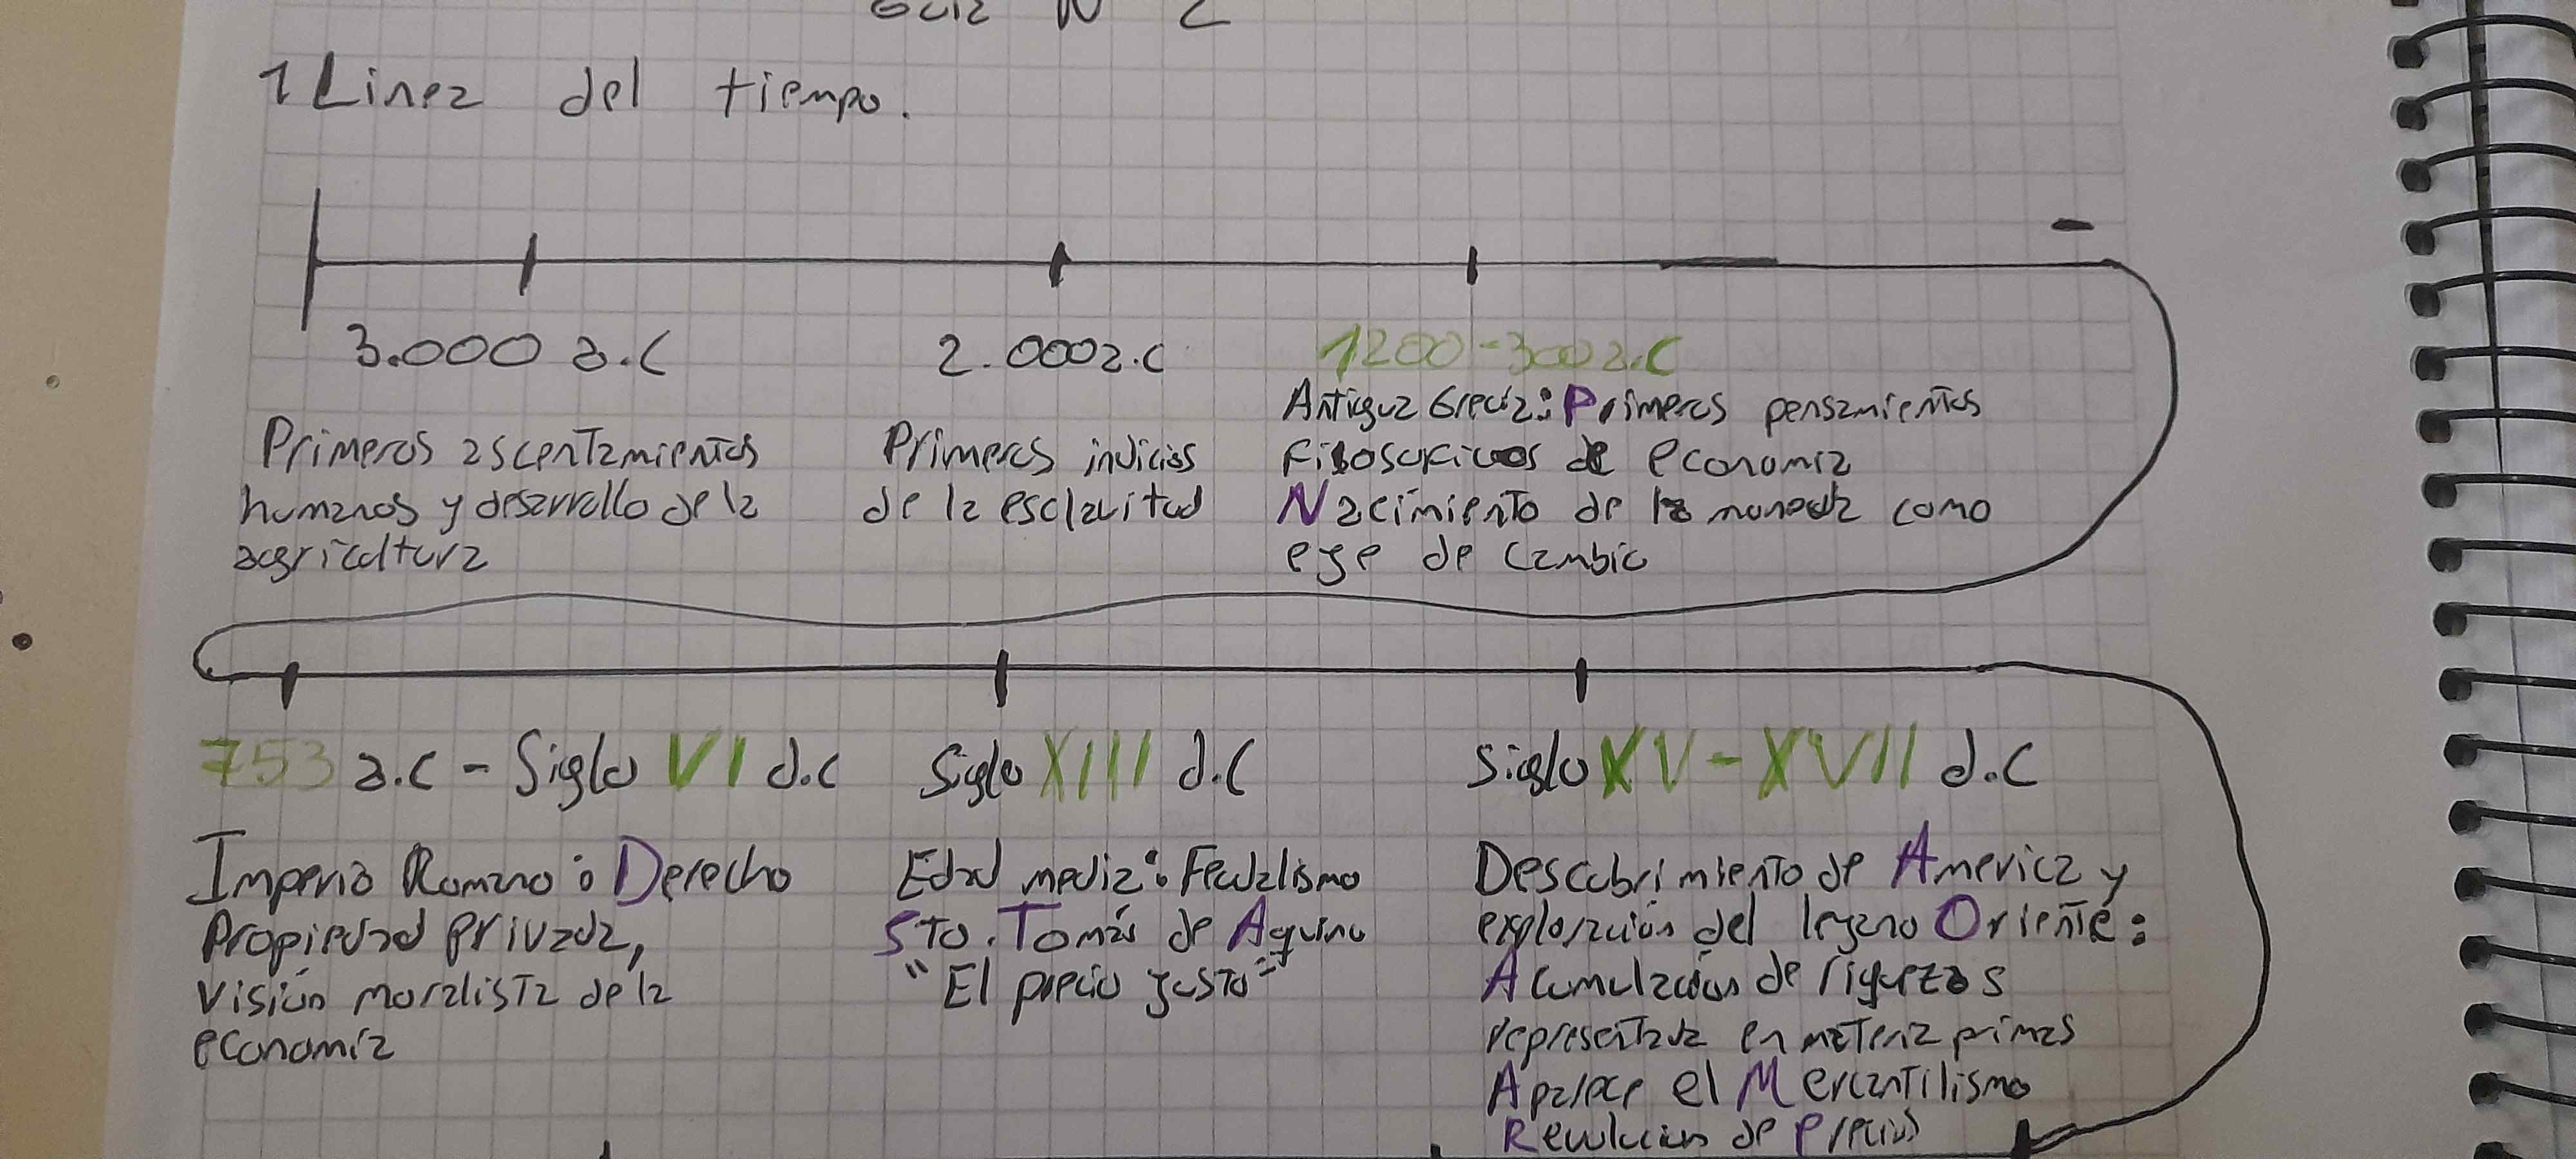 Guia N 2
1 Linea del tiempo.
3.000 a.C
2.000a.C
1200-300a.C
Primeros ascentamientos
humanos y desarrollo de la
agricultura
Primeros indicios
de la esclavitud
Antigua Grecia: Primeros pensamientos
filosoficos de economia
Nacimiento de la moneda como
eje de cambio
753 a.C - Siglo VI d.C
Siglo XIII d.C
Siglo XV - XVII d.C
Imperio Romano: Derecho
Propiedad privada,
visión moralista de la
economía
Edad media: Feudalismo
Sto. Tomás de Aquino
"El precio justo"
Descubrimiento de America y
exploración del lejano Oriente:
Acumulación de riquezas
representada en materia primas
Aparece el Mercantilismo
Revolucion de precios